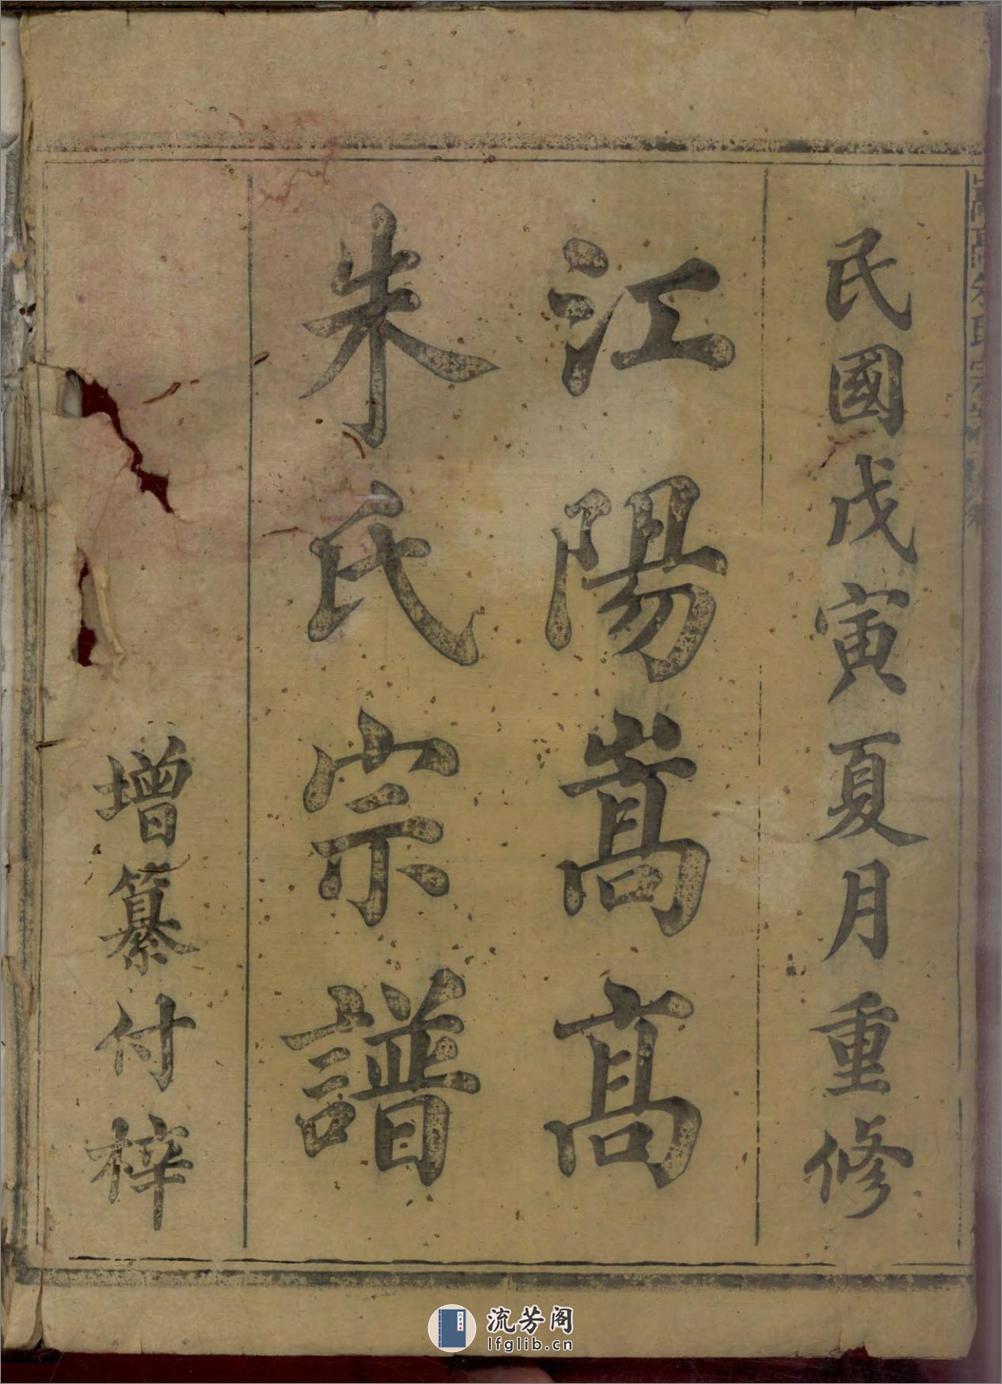 民國戊寅夏月重修
江陽嵩髙
朱氏宗譜
增纂付梓
流芳阁
lfglib.cn